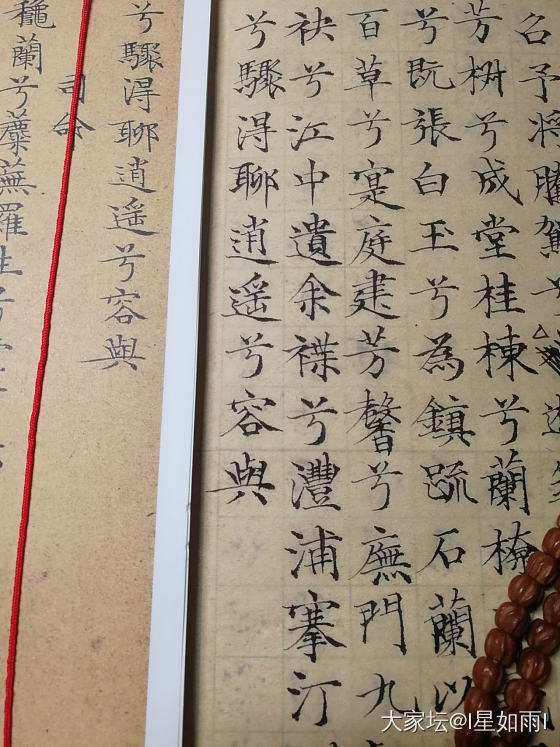 召予将騰駕兮
芳椒兮成堂桂棟兮蘭橑
兮既張白玉兮為鎮疏石蘭以
百草兮寔庭建芳馨兮廡門九
袂兮江中遺余褋兮澧浦搴汀
兮驟淂聊逍遥兮容與
兮驟淂聊逍遥兮容與
司命
穐蘭兮蘪蕪羅生兮
大家坛@l星如雨l